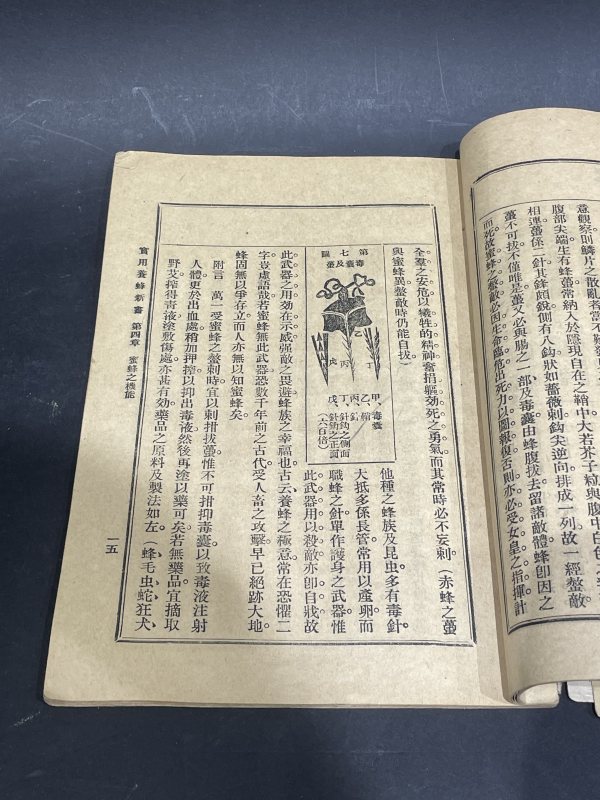 意觀察則鱗片之散亂者常不
腹部尖端生有蜂蠆常納入於隱現自在之鞘中大若芥子粒與腹中白色
相連蠆係二針其鋒頗銳側有八鈎狀如薔薇刺鈎尖逆向排成一列故一經螫敵
蠆不可拔不僅唯是蠆又必與腸之一部及毒囊由蜂腹拔去留諸敵體蜂卽因之
而死故蜜蜂之螫敵必因生命臨危出死力以圖報復否則亦必受女皇之指揮計
全羣之安危以犧牲的精神奮捐軀効死之勇氣而其常時必不妄刺(赤蜂之蠆
與蜜蜂異螫敵時仍能自拔)
第七圖
毒囊及蠆
甲、毒囊
乙、鞘
丙、鈎
丁、針鈎之側面
戊、針鈎之正面
(六百倍)
甲
乙
丙
丁
戊
他種之蜂族及昆虫。多有毒針。
大抵多係長管。常用以產卵。而
職蜂之針。單作護身之武器。惟
此武器用以殺敵。亦卽自戕。故
此武器之用。効在示威。强敵之畏避。蜂族之幸福也。古云。養蜂之極意。常在恐懼二
字。豈虛語哉。若蜜蜂無此武器。恐數千年前之古代。受人畜之攻擊。早已絕跡大地。
蜂固無以爭存立。而人亦無以知蜜蜂矣。
附言 萬一受蜜蜂之螫刺時。宜以刺措拔蠆。惟不可措抑毒囊。以致毒液注射
人體。更於出血處稍加押搾。以抑出毒液。然後再塗以藥可矣。若無藥品。宜摘取
野艾。搾得靑液。塗敷傷處。亦甚有効。藥品之原料及製法如左。(蜂毛虫蛇狂犬
實用養蜂新書 第四章 蜜蜂之機能
一五